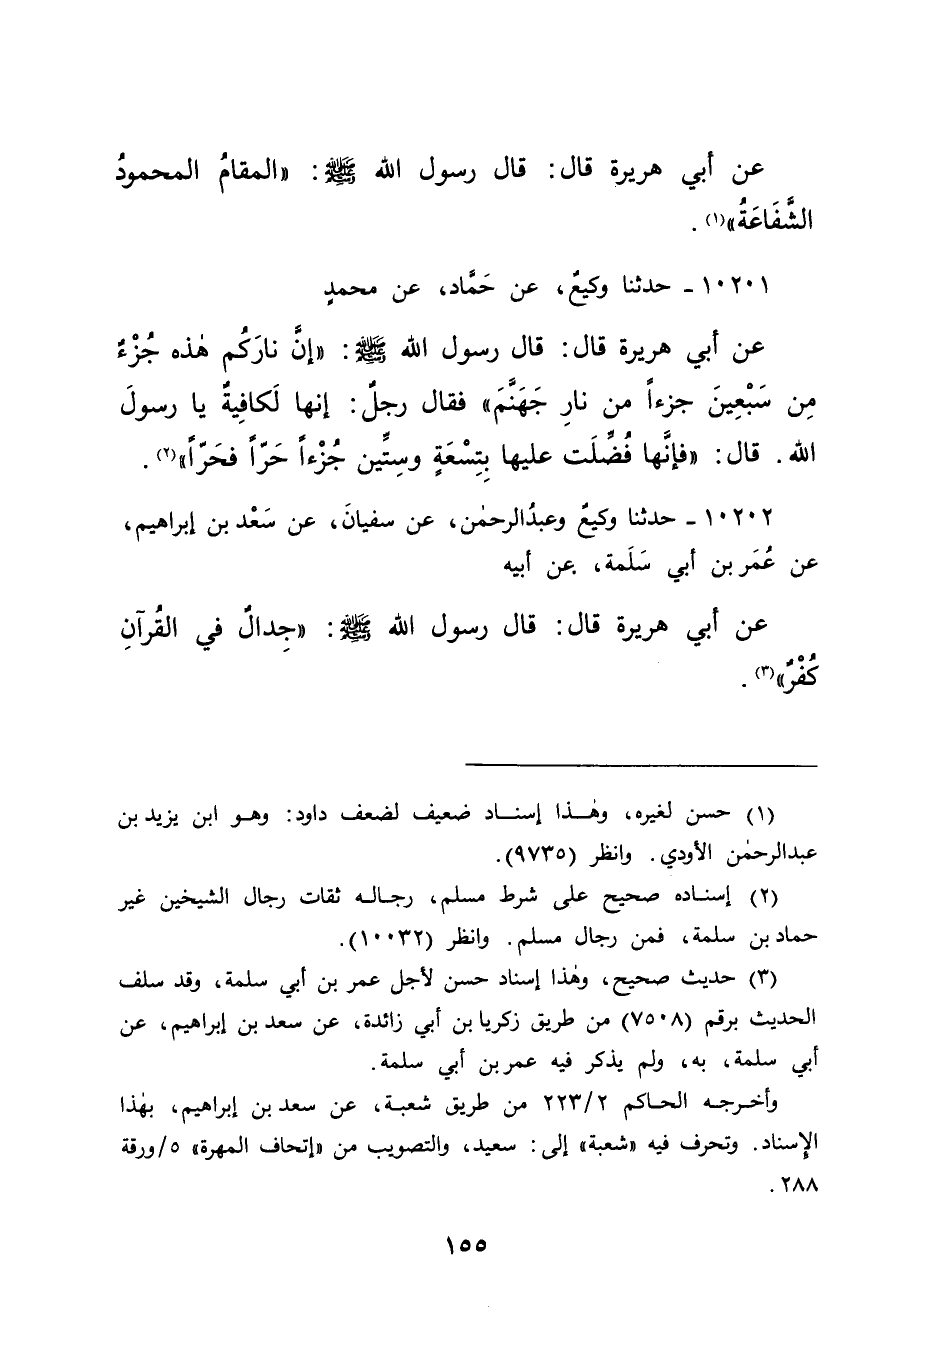 عن أبي هريرة قال: قال رسول الله ﷺ: «المقامُ المحمودُ
الشَّفَاعَةُ»(١) .
١٠٢٠١ - حدثنا وكيعٌ، عن حَمَّاد، عن محمدٍ
عن أبي هريرة قال: قال رسول الله ﷺ: «إنَّ نارَكُم هٰذه جُزْءٌ
مِن سَبْعِينَ جزءاً من نارِ جَهَنَّمَ» فقال رجلٌ: إنها لَكافِيةٌ يا رسولَ
الله . قال: «فإنَّها فُضِّلَت عليها بِتِسْعَةٍ وسِتِّين جُزْءاً حَرّاً فحَرّاً»(٢) .
١٠٢٠٢ - حدثنا وكيعٌ وعبدُالرحمٰن، عن سفيانَ، عن سَعْد بن إبراهيم،
عن عُمَر بن أبي سَلَمة، عن أبيه
عن أبي هريرة قال: قال رسول الله ﷺ: «جِدالٌ في القُرآنِ
كُفْرٌ»(٣) .
(١) حسن لغيره، وهٰذا إسناد ضعيف لضعف داود: وهو ابن يزيد بن
عبدالرحمٰن الأودي. وانظر (٩٧٣٥).
(٢) إسناده صحيح على شرط مسلم، رجاله ثقات رجال الشيخين غير
حماد بن سلمة، فمن رجال مسلم. وانظر (١٠٠٣٢).
(٣) حديث صحيح، وهٰذا إسناد حسن لأجل عمر بن أبي سلمة، وقد سلف
الحديث برقم (٧٥٠٨) من طريق زكريا بن أبي زائدة، عن سعد بن إبراهيم، عن
أبي سلمة، به، ولم يذكر فيه عمر بن أبي سلمة.
وأخرجه الحاكم ٢٢٣/٢ من طريق شعبة، عن سعد بن إبراهيم، بهٰذا
الإسناد. وتحرف فيه «شعبة» إلى: سعيد، والتصويب من «إتحاف المهرة» ٥/ورقة
٢٨٨ .
١٥٥